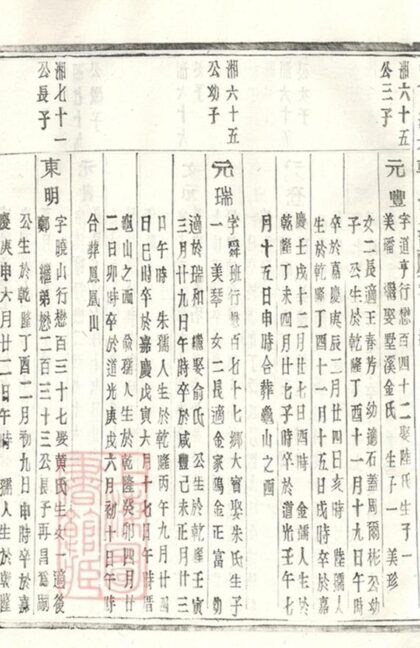 湘六十五
公三子
元豐
字道亨行懋百四十二娶陸氏生子一
美璠 繼娶墅溪金氏 生子一美珍
女二長適王春芳幼適石蓋周爾彬公幼
子 公生於乾隆丁酉十一月十九日午時
卒於嘉慶庚辰二月廿四日亥時 陸孺人
生於乾隆丁酉十一月十五日戌時卒於嘉
慶壬戌十二月廿七日酉時 金孺人生於
乾隆丁未四月廿七子時卒於道光壬午七
月十五日申時合葬龜山之酉
湘六十五
公幼子
元瑞
字舜班行懋百七十七鄉大賓娶朱氏生子
一美琴 女二長適金家鳴金正富幼
適於瑞和 繼娶俞氏 公生於乾隆壬寅
三月廿九日午時卒於咸豐己未正月廿三
日午時 朱孺人生於乾隆丙午九月廿四
日巳時卒於嘉慶戊寅六月十七日午時厝
龜山之酉 俞孺人生於乾隆癸卯四月廿
二日卯時卒於道光庚戌六月初十日午時
合葬鳳凰山
湘七十一
公長子
東明
字曉山行懋百三十七娶黃氏生女一適後
鄭 繼弟懋二百三十三公長子再昌為嗣
公生於乾隆丁酉二月初九日申時卒於嘉
慶庚申六月廿二日午時 孺人生於乾隆